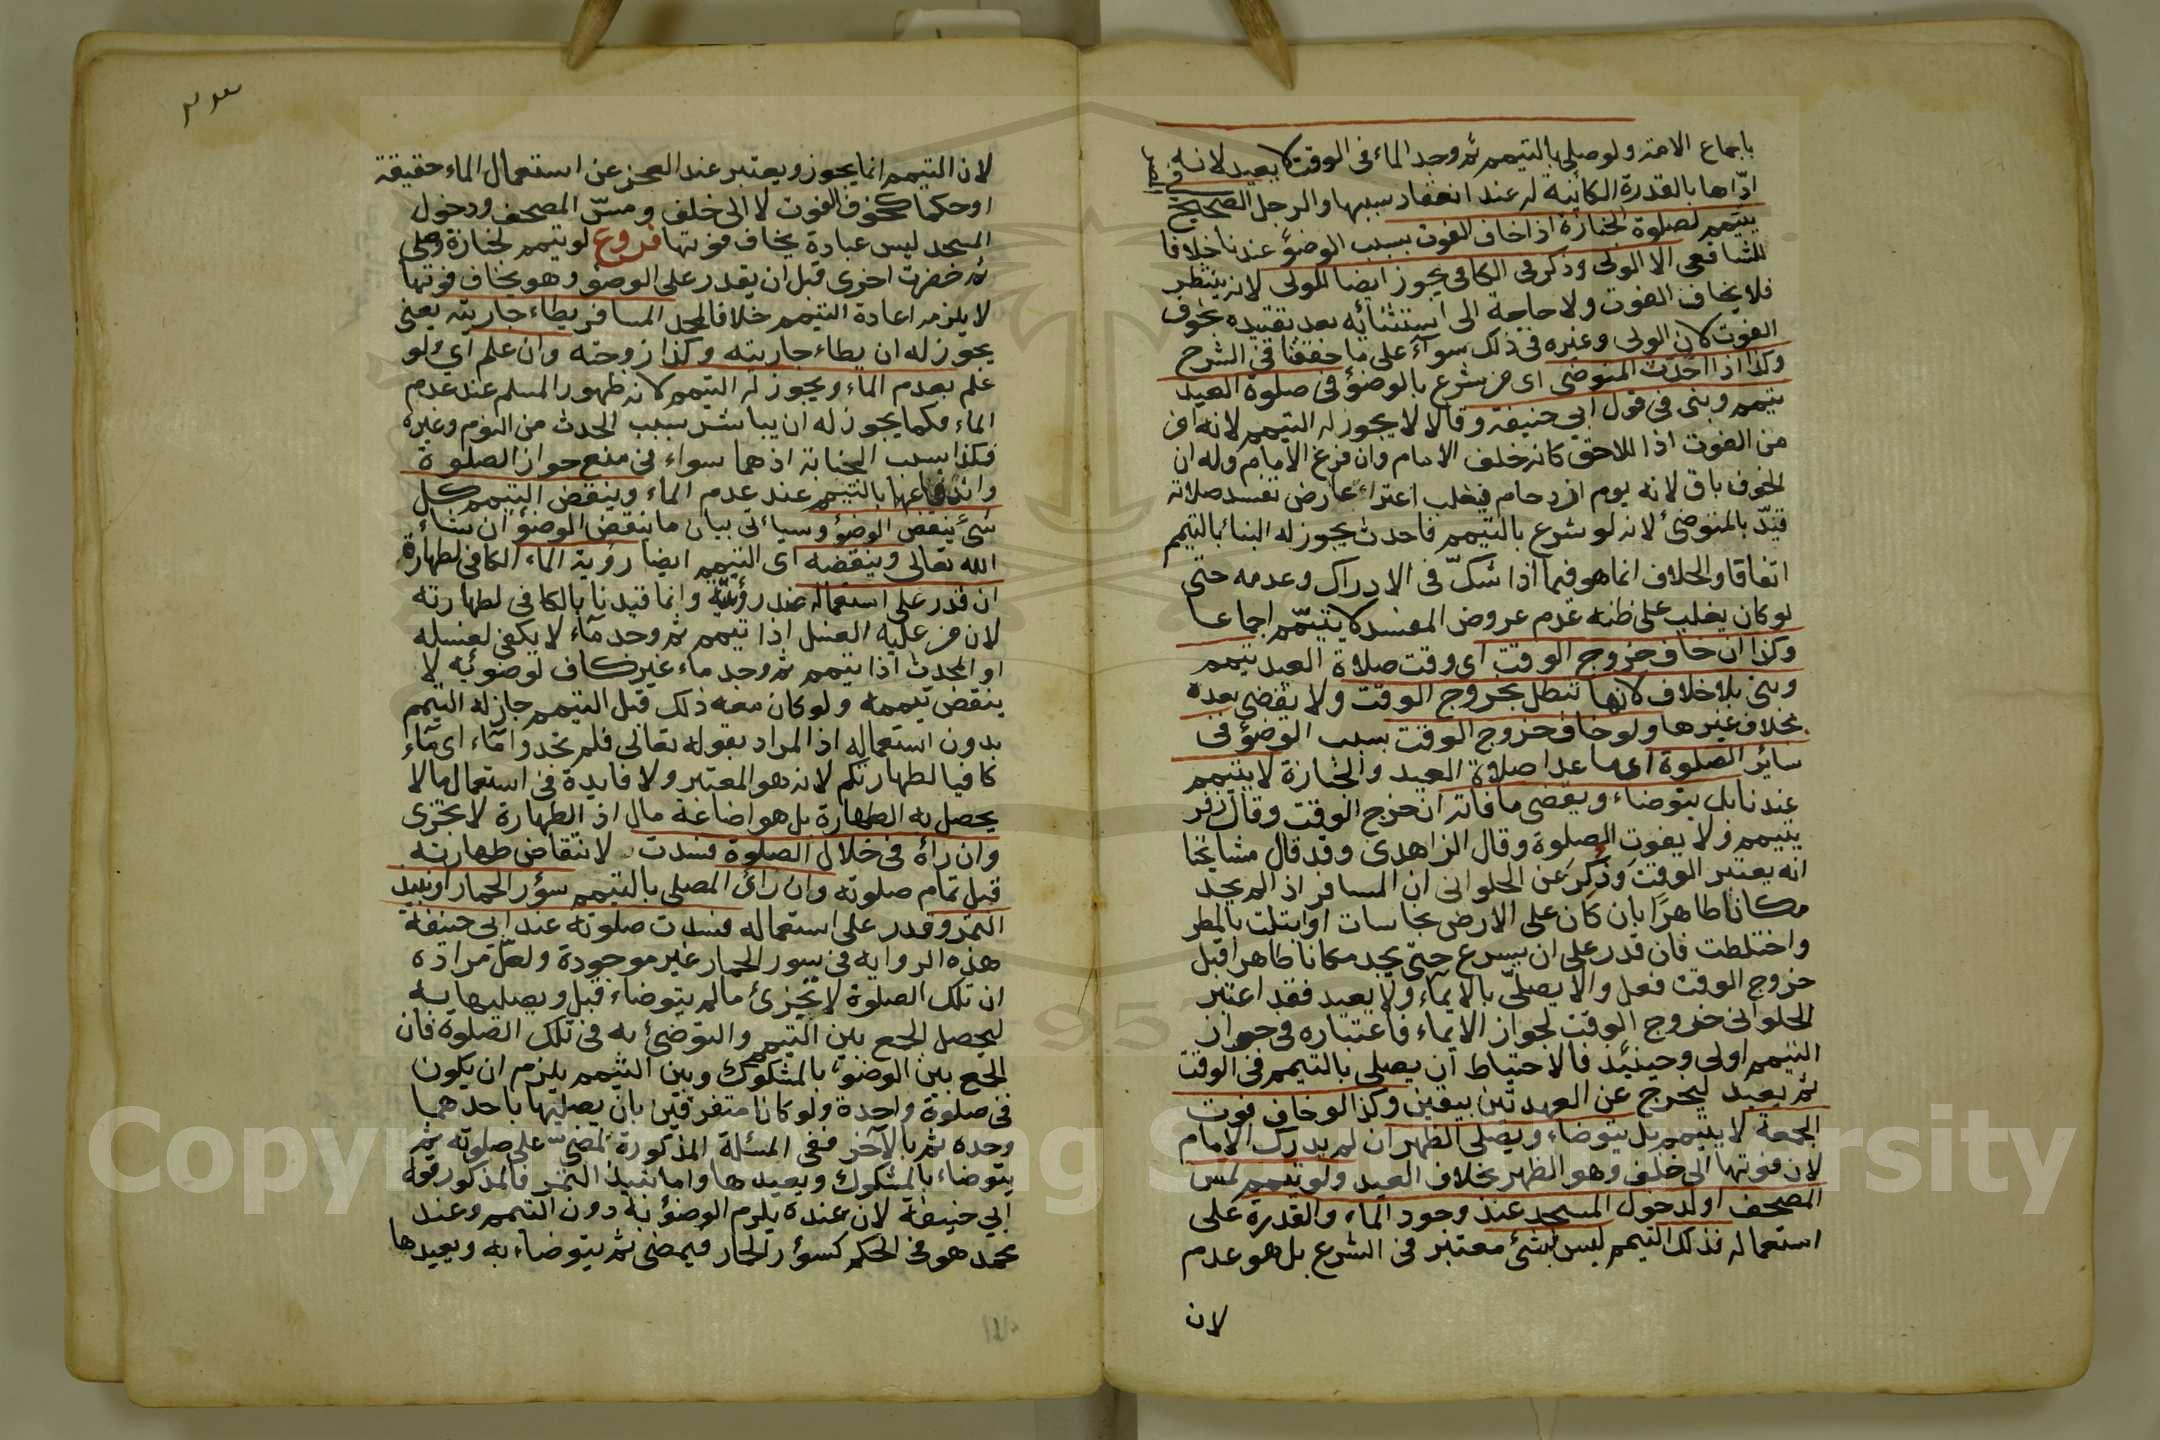 باجماع الامة ولو صلى بالتيمم ثم وجد الماء فى الوقت لا يعيد لانه
ادّاها بالقدرة الكائنة له عند انعقاد سببها والرجل الصحيح فى المصر
يتيمم لصلوة الجنازة اذا خاف الفوت بسبب الوضؤ عندنا خلافا
للشافعى الا الولى وذكر فى الكافى يجوز ايضا للولى لانه ينتظر
فلا يخاف الفوت ولا حاجة الى استثنائه بعد تقييده بخوف
الفوت لان الولى وغيره فى ذلك سوآء على ما حققنا فى الشرح
وكذا اذا احدث المتوضى اى من شرع بالوضؤ فى صلوة العيد
يتيمم وبنى فى قول ابي حنيفة وقالا لا يجوز له التيمم لانه امن
من الفوت اذا اللاحق كانه خلف الامام وان فرغ الامام وله ان
الخوف باق لانه يوم ازدحام فيغلب اعتراء عارض تفسد صلاته
قيّد بالمتوضئ لانه لو شرع بالتيمم فاحدث يجوز له البناء بالتيمم
اتفاقا والخلاف انما هو فيما اذا شكّ فى الادراك وعدمه حتى
لو كان يغلب على ظنه عدم عروض المفسد لا يتيمّم اجماعا
وكذا ان خاف خروج الوقت اى وقت صلاة العيد يتيمم
وبنى بلا خلاف لانها تبطل بخروج الوقت ولا يقضى بعده
بخلاف غيرها ولو خاف خروج الوقت بسبب الوضؤ فى
سائر الصلوة اى ما عدا صلاة العيد والجنازة لا يتيمم
عندنا بل يتوضاء ويقضى ما فاته ان خرج الوقت وقال زفر
يتيمم ولا يفوت الصلوة وقال الزاهدى وقد قال مشايخنا
انه يعتبر الوقت وذُكرَ عن الحلوانى ان المسافر اذ الم يجد
مكانا طاهرًا بان كان على الارض نجاسات او ابتلت بالمطر
واختلطت فان قدر على ان يسرع حتىّ يجد مكانا طاهرا قبل
خروج الوقت فعل والا يصلىّ بالايمآء ولا يعيد فقد اعتبر
الحلوانى خروج الوقت لجواز الايماء فاعتباره فى جواز
التيمم اولى وحينئذ فالاحتياط ان يصلى بالتيمم فى الوقت
ثم يعيد ليخرج عن العهدتين بيقين وكذا لو خاف فوت
الجمعة لا يتيمم بل يتوضاء ويصلى الظهر ان لم يدرك الامام
لان فوتها الى خلف وهو الظهر بخلاف العيد ولو تيمم لمس
المصحف او لدخول المسجد عند وجود الماء والقدرة على
استعماله فذلك التيمم ليس بشئ معتبر فى الشرع بل هو عدم
لان
٣٣
لان التيمم انما يجوز ويعتبر عند العجز عن استعمال الماء حقيقة
او حكما كخوف الفوت لا الى خلف ومسّ المصحف ودخول
المسجد ليس عبادة يخاف فوتها فروع لو تيمم لجنازة وصلى
ثم حضرت اخرى قبل ان يقدر على الوضؤ وهو يخاف فوتها
لا يلزمه اعادة التيمم خلافا لمحمد المسافر يطاء جاريته يعنى
يجوز له ان يطاء جاريته وكذا زوجته وان علم اي ولو
علم بعدم الماء ويجوز له التيمم لانه طهور المسلم عند عدم
الماء فكما يجوز له ان يباشر سبب الحدث من النوم وغيره
فكذا سبب الجنابة اذ هما سواء فى منع جواز الصلوة
واندفاعها بالتيمم عند عدم الماء وينقض التيمم كل
شئ ينقض الوضؤ وسياتى بيان ما ينقض الوضؤ ان شاء
الله تعالى وينقضه اى التيمم ايضا رؤية الماء الكافى لطهارة
ان قدر على استعماله عند رؤيته وانما قيدنا بالكافى لطهارته
لان من عليه الغسل اذا تيمم ثم وجد مآء لا يكفى لغسله
او المحدث اذا تيمم ثم وجد ماء غير كاف لوضوئه لا
ينقض تيممه ولو كان معه ذلك قبل التيمم جاز له التيمم
بدون استعماله اذ المراد بقوله تعالى فلم تجدوا مآء اى مآء
كافيا لطهارتكم لانه هو المعتبر ولا فايدة فى استعمال ما لا
يحصل به الطهارة بل هو اضاعة مال اذ الطهارة لا تجزى
وان رأه فى خلال الصلوة فسدت لانتقاض طهارته
قبل تمام صلوته وان راى المصلى بالتيمم سؤر الحمار او نبيذ
التمر وقدر على استعماله فسدت صلوته عند ابى حنيفة
هذه الرواية فى سور الحمار غير موجودة ولعلّ مراده
ان تلك الصلوة لا تجزئ ما لم يتوضاء قبل ويصليها به
ليحصل الجمع بين التيمم والتوضئ به فى تلك الصلوة فان
الجمع بين الوضوء بالمشكوك وبين التيمم يلزم ان يكون
فى صلوة واحدة ولو كانا متفرقين بان يصليها باحدهما
وحده ثم بالآخر ففى المسئلة المذكورة يمضى على صلوته ثم
يتوضاء بالمشكوك ويعيدها واما نبيذ التمر فالمذكور قول
ابي حنيفة لان عنده يلزم الوضؤ به دون التيمم وعند
محمد هو فى الحكم كسؤر الحمار فيمضى ثم يتوضاء به ويعيدها